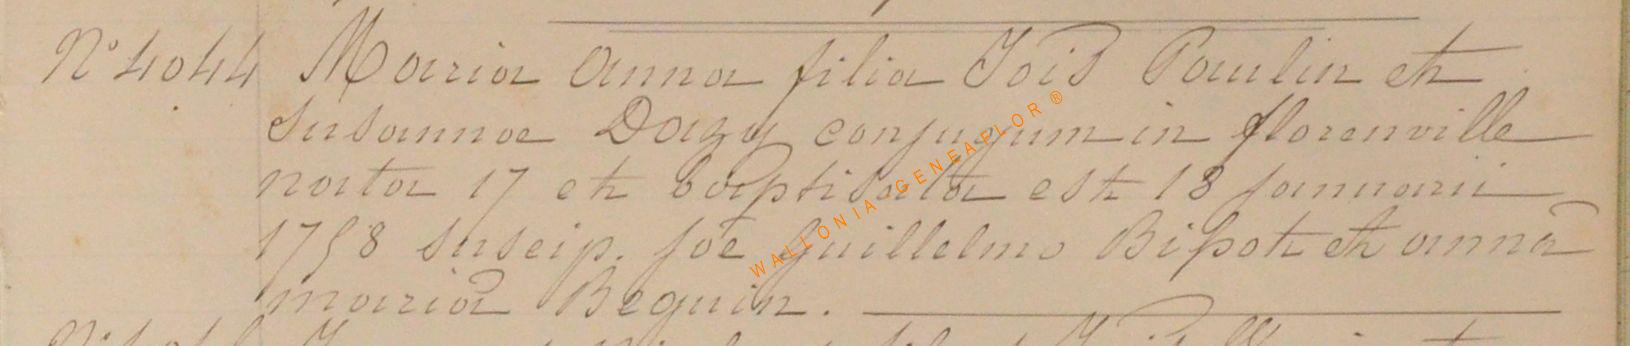 N° 4044 Maria Anna filia Jois Paulin et
Susannae Dazy conjugum in florenville
nata 17 et baptisata est 18 januarii
1758 suscip. joe Guillelmo Bipot et anna
maria Beguin.
WALLONIA GENEAFLOR ®